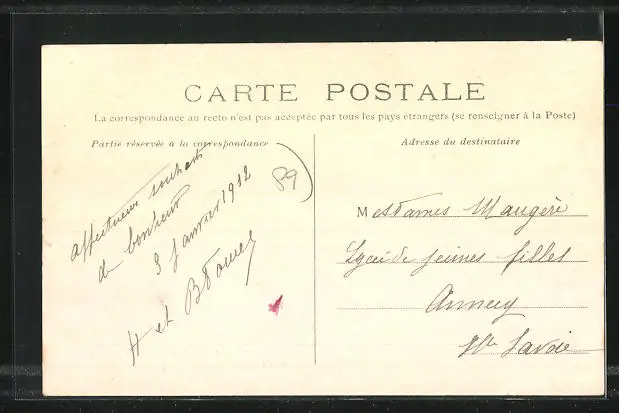 CARTE POSTALE
La correspondance au recto n'est pas acceptée par tous les pays étrangers (se renseigner à la Poste)
Partie réservée a la correspondance
Adresse du destinataire
affectueux souhaits
de bonheur
3 Janvier 1912
H et B
89
Mesdames Maugère
Lycée de jeunes filles
Annecy
Hte Savoie